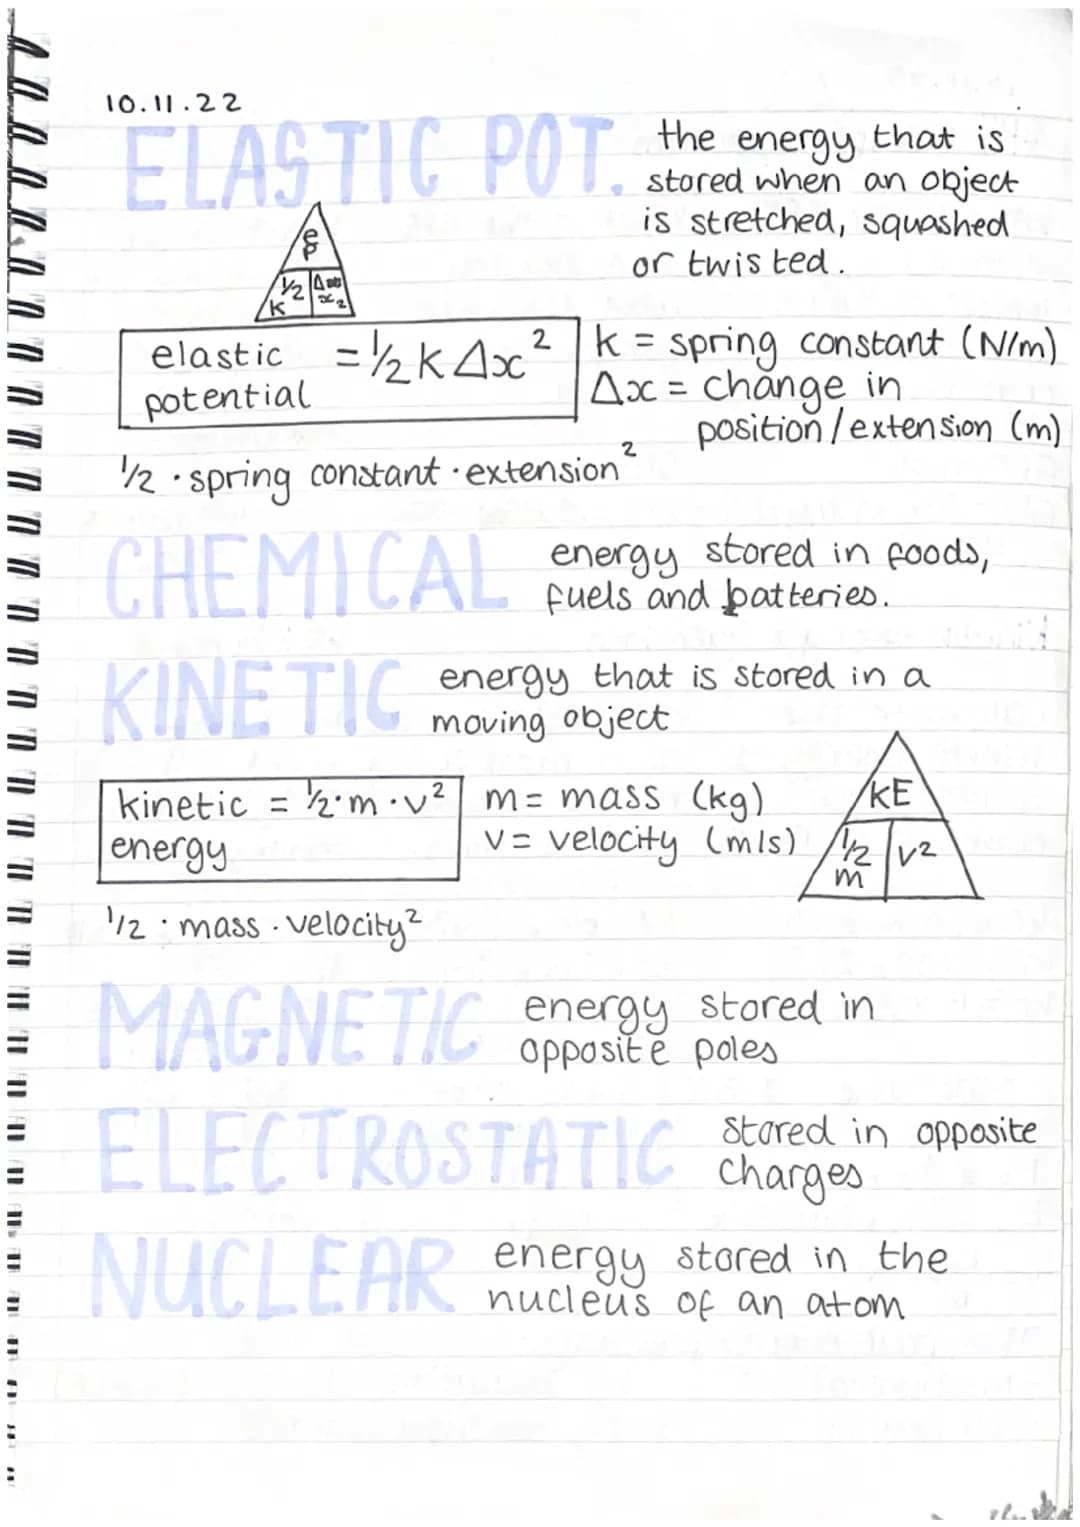 10.11.22
ELASTIC POT.
the energy that is
stored when an object
is stretched, squashed
or twisted.
½ k
x²
elastic potential = ½ k Δx²
k = spring constant (N/m)
Δx = change in
position/extension (m)
½ · spring constant · extension²
CHEMICAL
energy stored in foods,
fuels and batteries.
KINETIC
energy that is stored in a
moving object
kinetic energy = ½ · m · v²
m = mass (kg)
v = velocity (m/s)
KE
½ m
v²
½ · mass · velocity²
MAGNETIC
energy stored in
opposite poles
ELECTROSTATIC
stored in opposite
charges
NUCLEAR
energy stored in the
nucleus of an atom